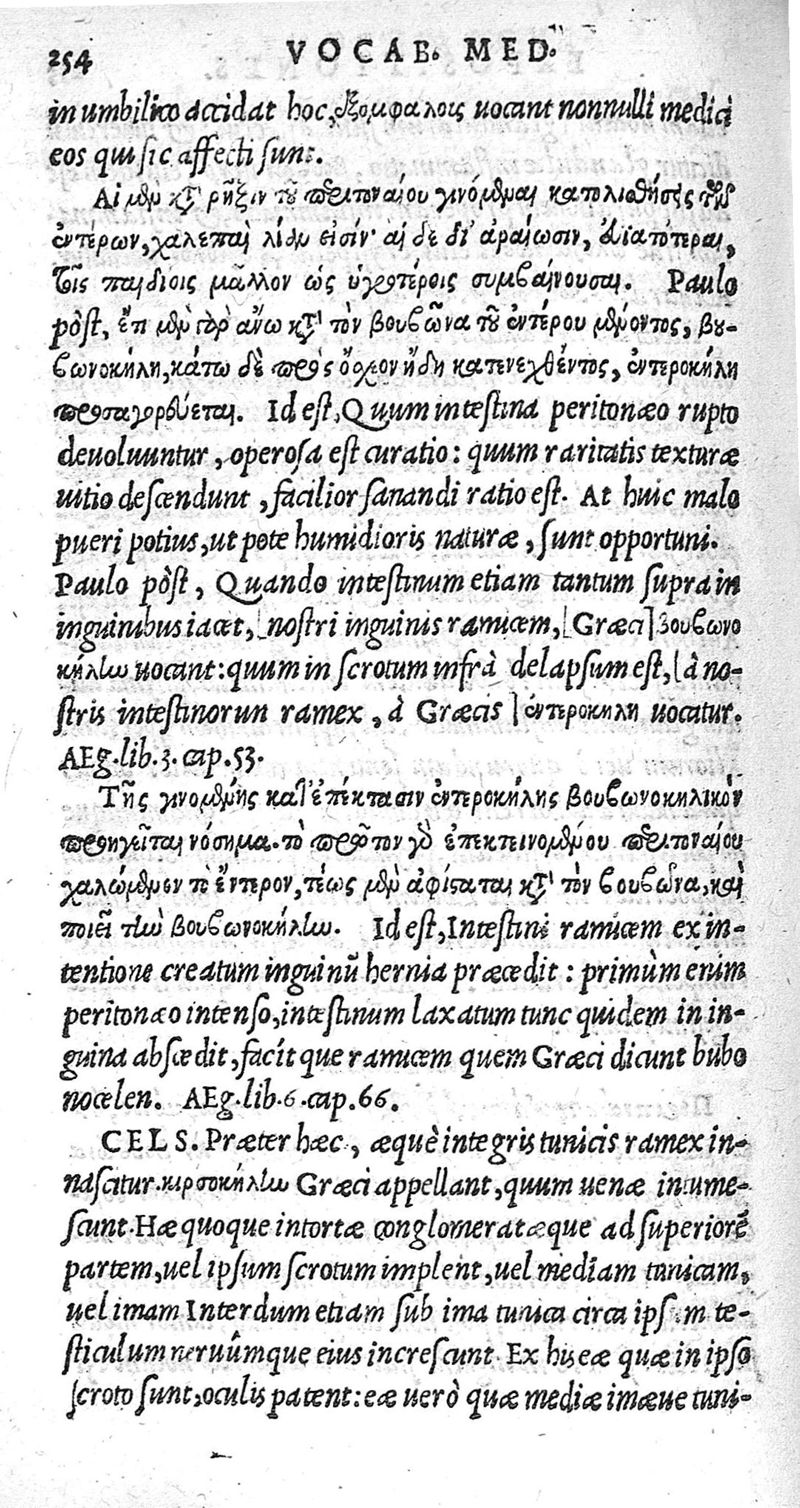 254 VOCAB. MED.
in umbilico accidat hoc, ἐξομφάλοις uocant nonnulli medici
eos qui sic affecti sunt.
Αἱ μὲν κατὰ ρῆξιν τοῦ περιτοναίου γινόμεναι κατολισθήσεις τῶν
ἐντέρων, χαλεπαὶ λίαν εἰσίν· αἱ δὲ δι' ἀραίωσιν,
τοῖς παιδίοις μᾶλλον ὡς ὑγροτέροις συμβαίνουσαι. Paulo
pòst, ἔτι μὲν γὰρ ἄνω κατὰ τὸν βουβῶνα τοῦ ἐντέρου μένοντος, βου-
βωνοκήλη, κάτω δὲ πρὸς ὄσχεον ἤδη κατενεχθέντος, ἐντεροκήλη
προσαγορεύεται. Id est, Quum intestina peritonæo rupto
deuoluuntur, operosa est curatio: quum raritatis texturæ
uitio descendunt, facilior sanandi ratio est. At huic malo
pueri potius, ut pote humidioris naturæ, sunt opportuni.
Paulo pòst, Quando intestinum etiam tantum supra in
inguinibus iacet, [nostri inguinis ramicem, [Græci] βουβωνο
κήλην uocant: quum in scrotum infrà delapsum est, [à no-
stris intestinorun ramex, à Græcis] ἐντεροκήλη uocatur.
AEg. lib. 3. cap. 53.
Τῆς γινομένης κατ' ἐπέκτασιν ἐντεροκήλης βουβωνοκηλικὸν
προηγεῖται νόσημα. τὸ πρῶτον γὰρ ἐπεκτεινομένου περιτοναίου
χαλώμενον τὸ ἔντερον, τέως μὲν ἀφίσταται κατὰ τὸν βουβῶνα, καὶ
ποιεῖ τὴν βουβωνοκήλην. Id est, Intestini ramicem ex in-
tentione creatum inguinū hernia præcedit: primùm enim
peritonæo intenso, intestinum laxatum tunc quidem in in-
guina abscedit, facit que ramicem quem Græci dicunt bubo
nocelen. AEg. lib. 6. cap. 66.
CELS. Præter hæc, æquè integris tunicis ramex in-
nascitur. κιρσοκήλην Græci appellant, quum uenæ intume-
scunt. Hæ quoque intortæ conglomeratæque ad superiorē
partem, uel ipsum scrotum implent, uel mediam tunicam,
uel imam Interdum etiam sub ima tunica circa ipsum te-
sticulum neruûmque eius increscunt. Ex his eæ quæ in ipso
scroto sunt, oculis patent: eæ uerò quæ mediæ imæue tuni-